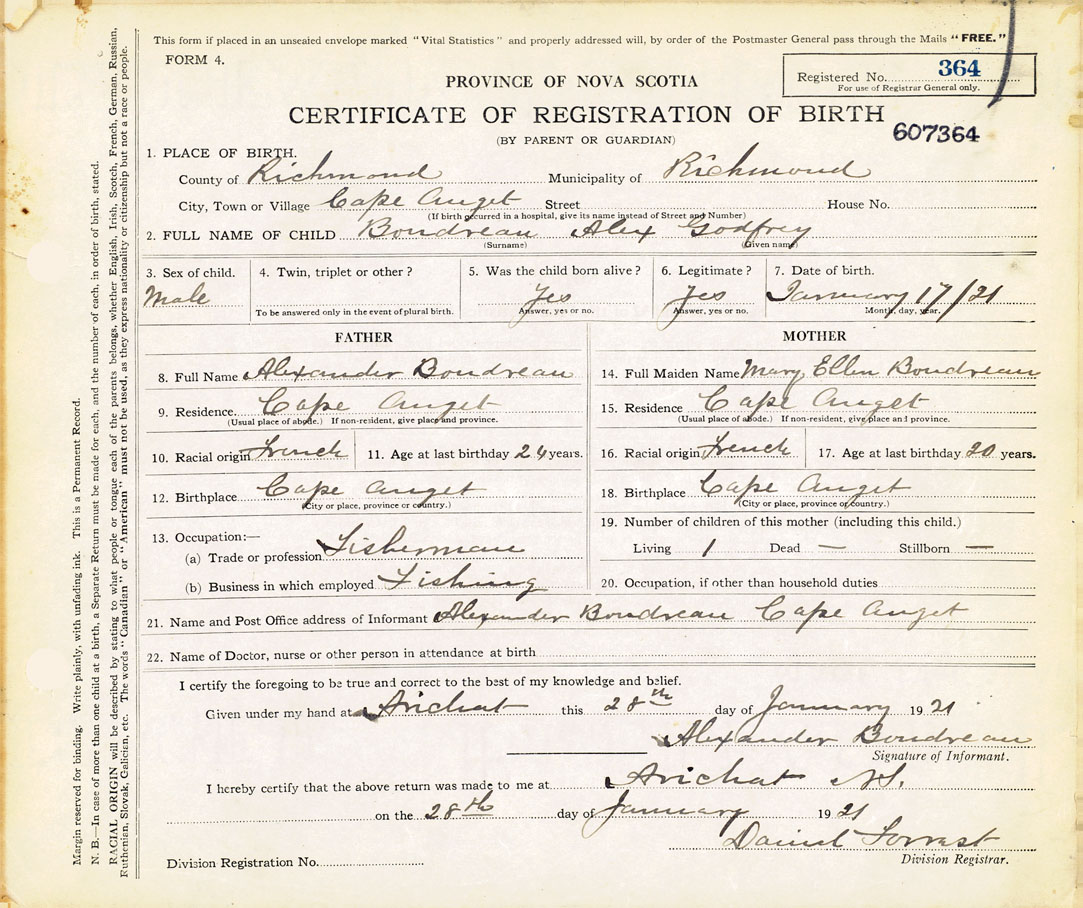 This form if placed in an unsealed envelope marked "Vital Statistics" and properly addressed will, by order of the Postmaster General pass through the Mails "FREE."
FORM 4.
Registered No. 364
For use of Registrar General only.
PROVINCE OF NOVA SCOTIA
CERTIFICATE OF REGISTRATION OF BIRTH
607364
(BY PARENT OR GUARDIAN)
1. PLACE OF BIRTH.
County of Richmond Municipality of Richmond
City, Town or Village Cape Auget Street House No.
(If birth occurred in a hospital, give its name instead of Street and Number)
2. FULL NAME OF CHILD Boudreau Alex Godfrey
(Surname) (Given name)
3. Sex of child. 4. Twin, triplet or other? 5. Was the child born alive? 6. Legitimate? 7. Date of birth.
Male Yes Yes January 17/21
To be answered only in the event of plural birth. Answer, yes or no. Answer, yes or no. Month, day, year.
FATHER
8. Full Name Alexander Boudreau
9. Residence. Cape Auget
(Usual place of abode.) If non-resident, give place and province.
10. Racial origin French 11. Age at last birthday 24 years.
12. Birthplace Cape Auget
(City or place, province or country.)
13. Occupation:—
(a) Trade or profession Fisherman
(b) Business in which employed Fishing
MOTHER
14. Full Maiden Name Mary Ellen Boudreau
15. Residence Cape Auget
(Usual place of abode.) If non-resident, give place and province.
16. Racial origin French 17. Age at last birthday 20 years.
18. Birthplace Cape Auget
(City or place, province or country.)
19. Number of children of this mother (including this child.)
Living 1 Dead — Stillborn —
20. Occupation, if other than household duties
21. Name and Post Office address of Informant Alexander Boudreau Cape Auget
22. Name of Doctor, nurse or other person in attendance at birth
I certify the foregoing to be true and correct to the best of my knowledge and belief.
Given under my hand at Arichat this 28th day of January 1921
Alexander Boudreau
Signature of Informant.
I hereby certify that the above return was made to me at Arichat N.S.
on the 28th day of January 1921
Daniel Forrest
Division Registrar.
Division Registration No.
Margin reserved for binding. Write plainly, with unfading ink. This is a Permanent Record.
N. B.—In case of more than one child at a birth, a Separate Return must be made for each, and the number of each, in order of birth, stated.
RACIAL ORIGIN will be described by stating to what people or tongue each of the parents belongs, whether English, Irish, Scotch, French, German, Russian,
Ruthenian, Slovak, Galician, etc. The words "Canadian" or "American" must not be used, as they express nationality or citizenship but not a race or people.